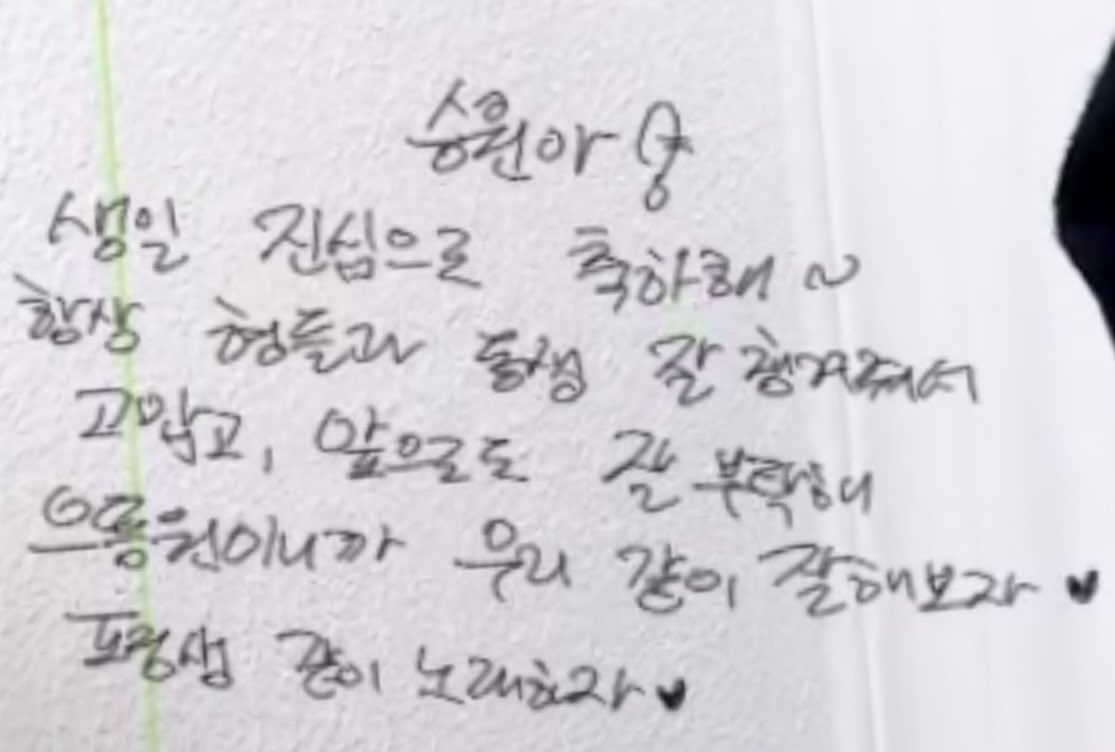 승원아
생일 진심으로 축하해~
항상 형들과 동생 잘 챙겨줘서
고맙고, 앞으로도 잘 부탁해
으뜸원이니까 우리 같이 잘해보자♥
평생 같이 노래하자♥